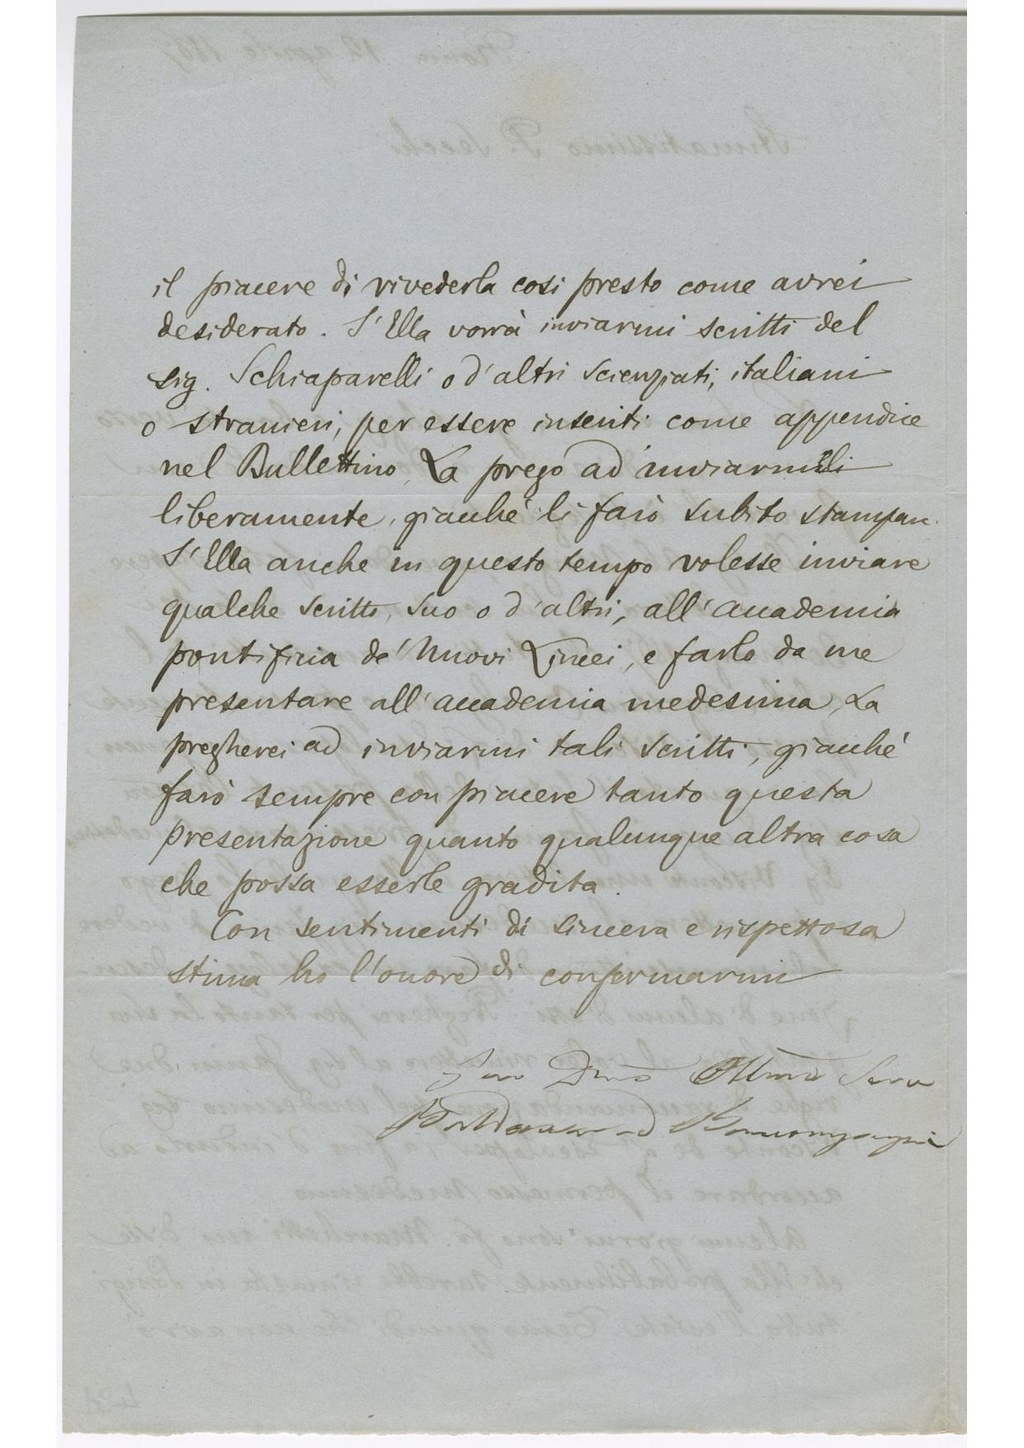 il piacere di rivederla così presto come avrei
desiderato. S'Ella vorrà inviarmi scritti del
sig. Schiaparelli o d'altri scienziati, italiani
o stranieri, per essere inseriti come appendice
nel Bullettino, La prego ad inviarmeli
liberamente, giacchè li farò subito stampare.
S'Ella anche in questo tempo volesse inviare
qualche scritto, suo o d'altri, all'accademia
pontificia de' Nuovi Lincei, e farlo da me
presentare all'accademia medesima, La
pregherei ad inviarmi tali scritti, giacchè
farò sempre con piacere tanto questa
presentazione quanto qualunque altra cosa
che possa esserle gradita.
Con sentimenti di sincera e rispettosa
stima ho l'onore di confermarmi
Suo Dmo Obbmo Serv
Baldassarre Boncompagni